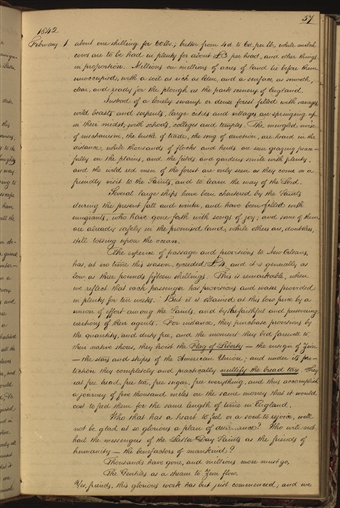 57
1842.
February 1 about one shilling for 60lbs; butter from 4d to 6d per lb, while milch
cows are to be had in plenty for about £3 per head, and other things
in proportion. Millions on millions of acres of land lie before them
unoccupied, with a soil as rich as Eden, and a surface as smooth,
clear, and ready for the plough as the park scenery of England.
Instead of a lonely swamp or dense forest filled with savages,
wild beasts and serpents, large cities and villages are springing up
in their midst, with schools, colleges and temples. The mingled noise
of mechanism, the bustle of trade, the song of devotion, are heard in the
distance, while thousands of flocks and herds are seen grazing peace-
fully on the plains, and the fields and gardens smile with plenty,
and the wild red men of the forest are only seen as they come on a
friendly visit to the Saints, and to learn the way of the Lord.
Several large ships have been chartered by the Saints
during the present fall and winter, and have been filled with
emigrants, who have gone forth with songs of joy; and some of them
are already safely in the promised land, while others are, doubtless,
still tossing upon the ocean.
The expense of passage and provisions to New Orleans
has, at no time this season, exceeded £4, and it is generally as
low as three pounds fifteen shillings. This is remarkable, when
we reflect that each passenger has provisions and water provided
in plenty for ten weeks. But it is obtained at this low price by a
union of effort among the Saints, and by the faithful and persevering
exertions of their agents. For instance, they purchase provisions by
the quantity, and duty free, and the moment they bid farewell to
their native shore, they hoist the Flag of Liberty — the ensign of Zion
— the stars and stripes of the American Union; and under its pro-
tection they completely and practically nullify the bread tax. They
eat free bread, free tea, free sugar, free everything, and thus accomplish
a journey of five thousand miles on the same money that it would
cost to feed them for the same length of time in England.
Who that has a heart to feel, or a soul to rejoice, will
not be glad at so glorious a plan of deliverance? Who will not
hail the messengers of the Latter Day Saints as the friends of
humanity — the benefactors of mankind?
Thousands have gone, and millions more must go,
The Gentiles as a stream to Zion flow.
Yes, friends, this glorious work has but just commenced; and we